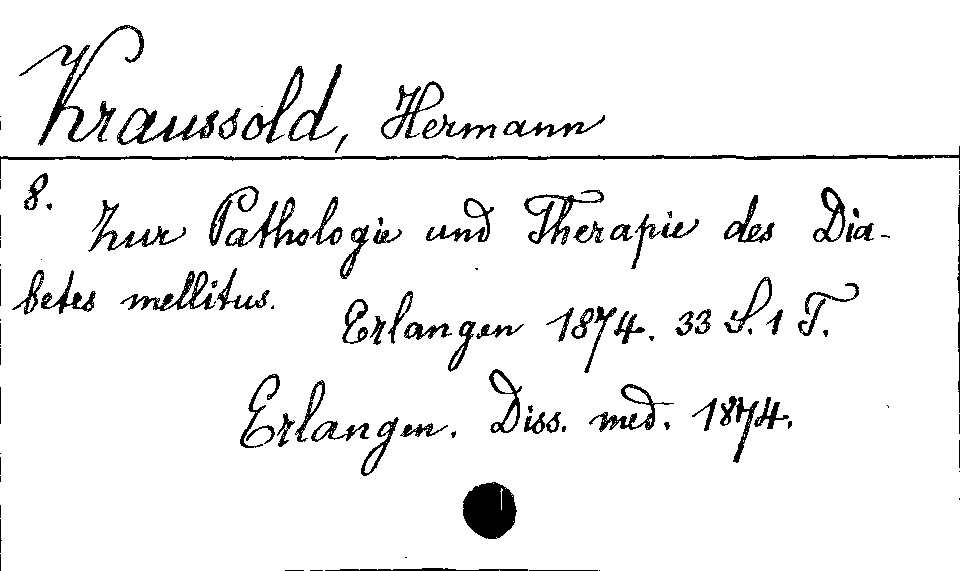 Kraussold, Hermann
8.
Zur Pathologie und Therapie des Dia-
betes mellitus.
Erlangen 1874. 33 S. 1 T.
Erlangen. Diss. med. 1874.